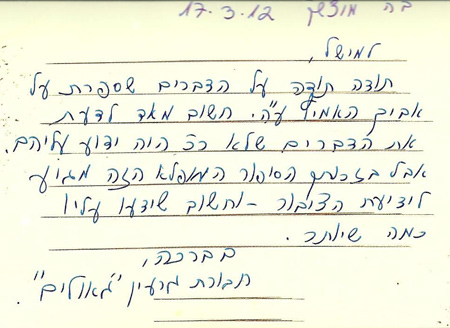 בה מוצש״ק 17.3.12
למישל,
תודה תודה על הדברים שספרת על
אביך האמיץ ע״ה. חשוב מאד לדעת
את הדברים שלא כ״כ היה ידוע עליהם.
אבל בזכותך הסיפור המופלא הזה מגיע
לידיעת הציבור - וחשוב שידעו עליו
כמה שיותר.
בברכה,
חבורת גרעין "גאולים"